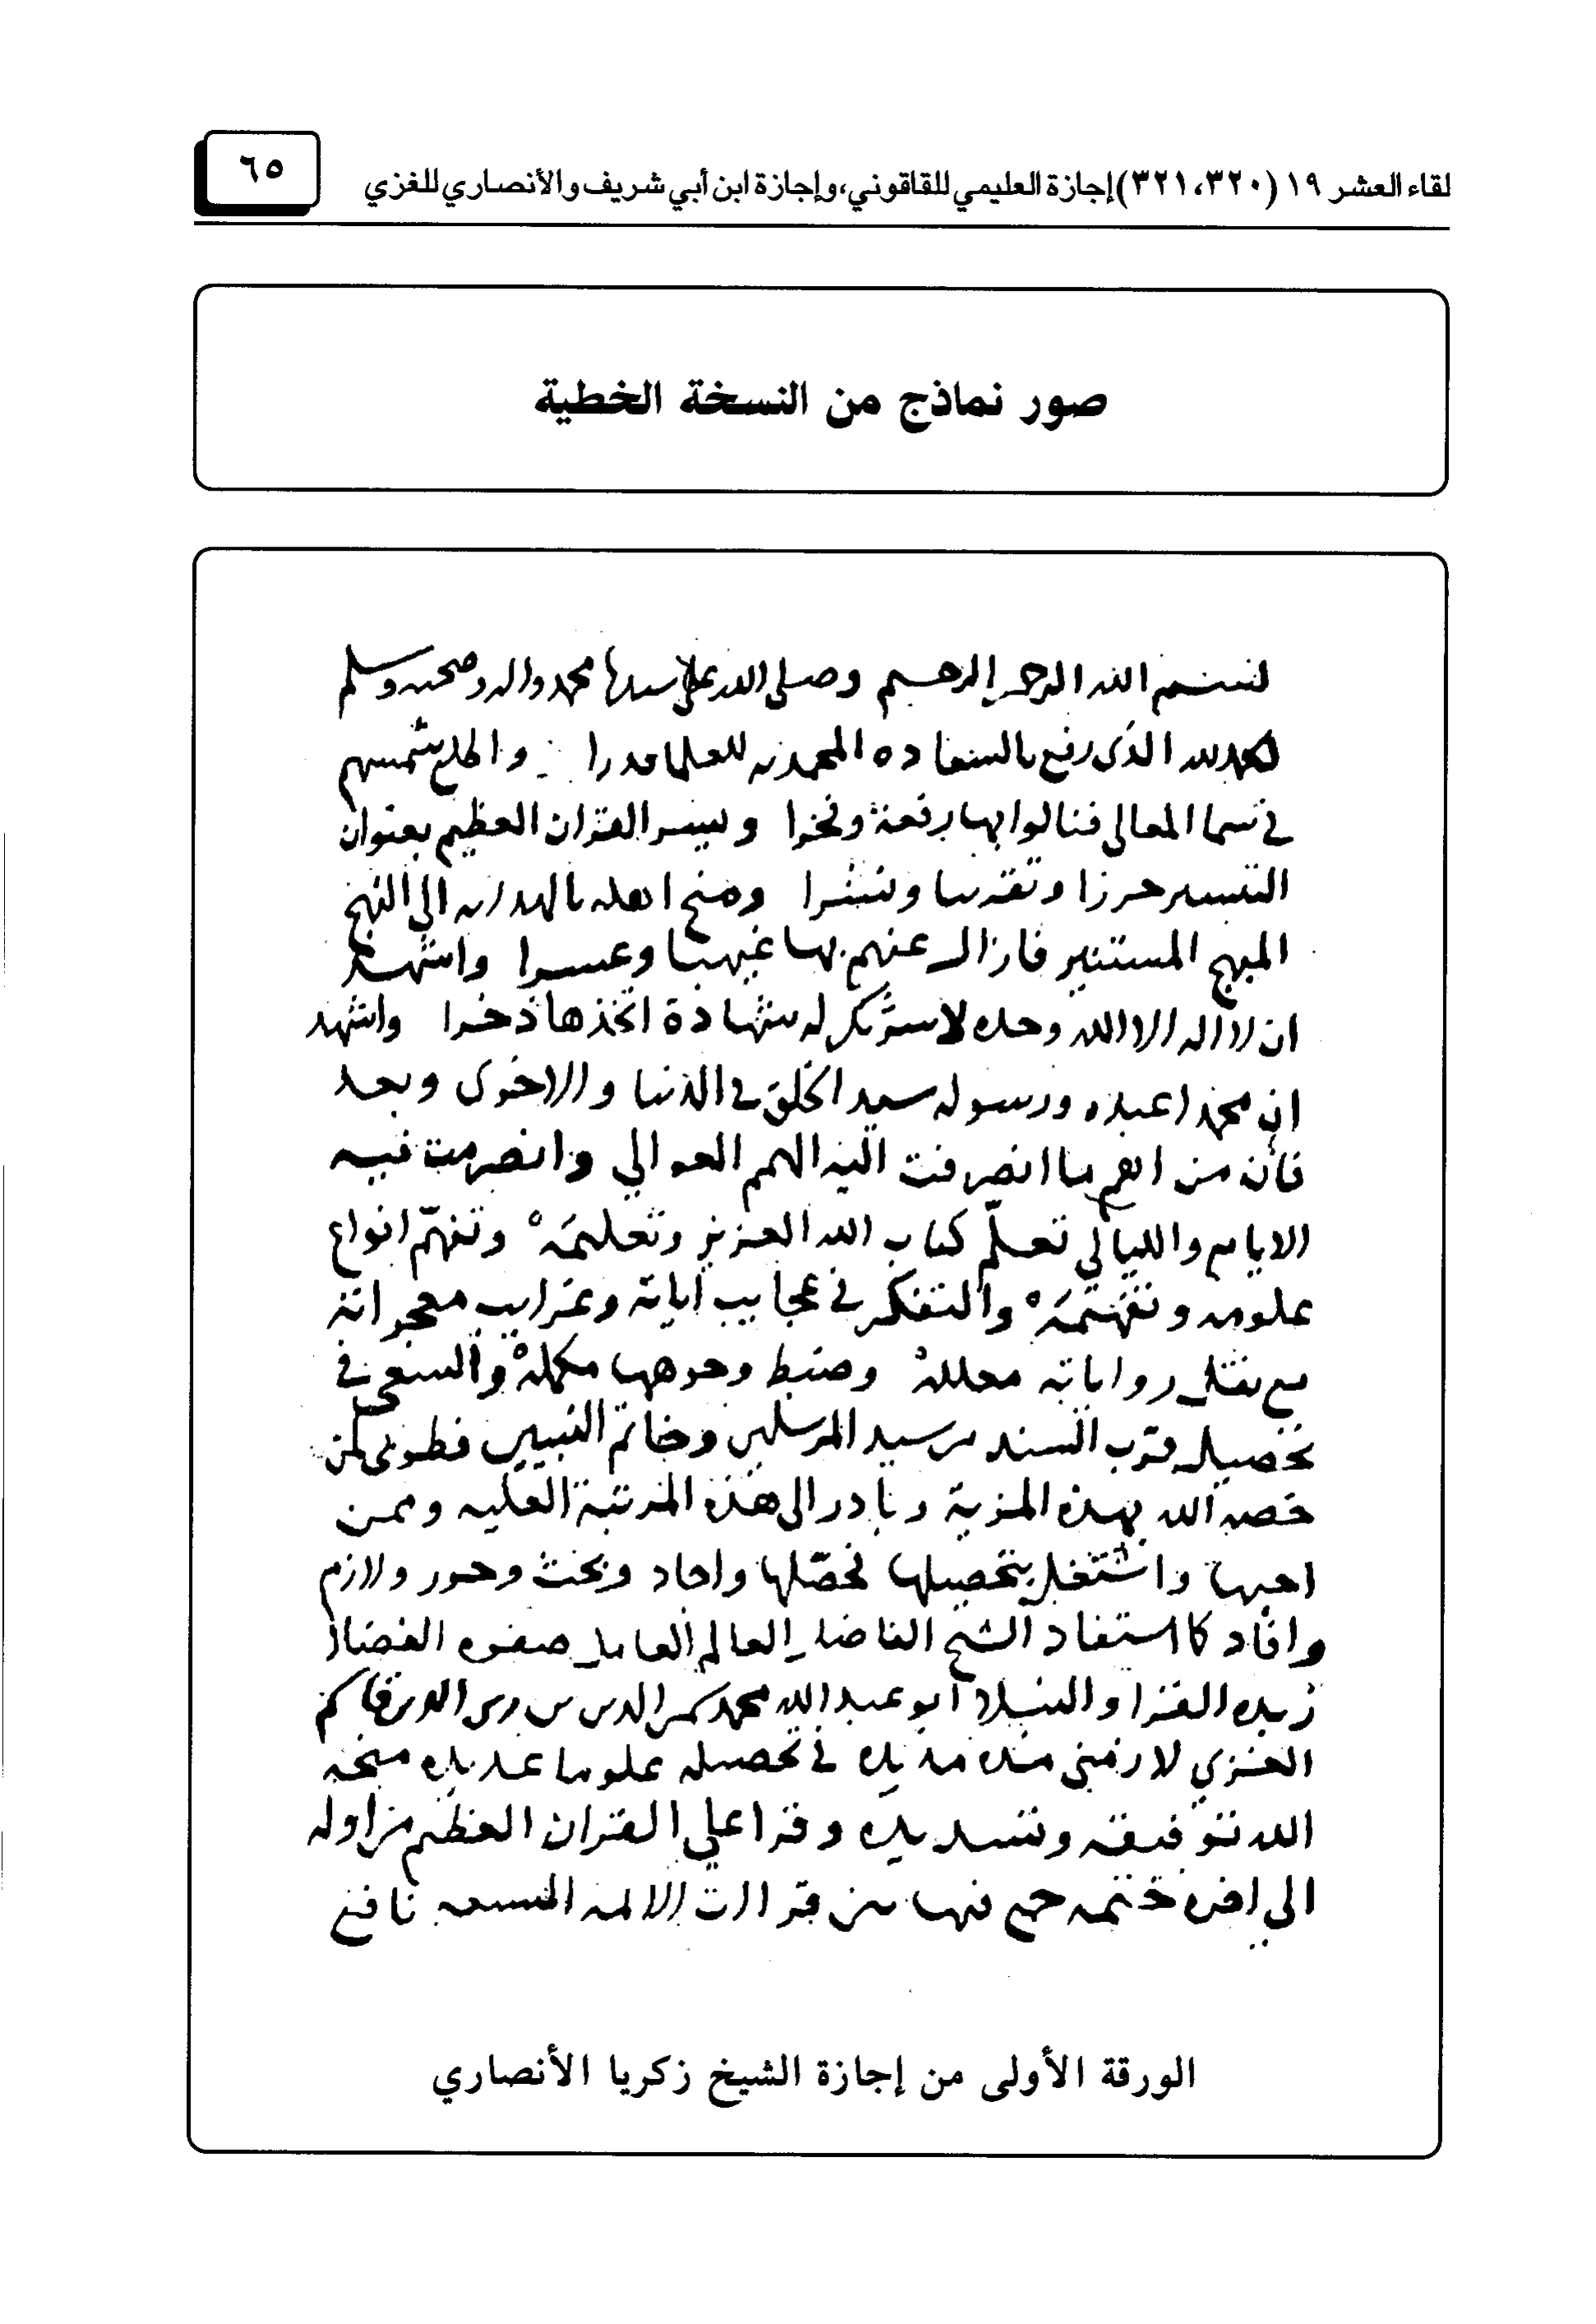 لقاء العشر ١٩ (٣٢٠، ٣٢١) إجازة العليمي للقاقوني، وإجازة ابن أبي شريف والأنصاري للغزي
٦٥
صور نماذج من النسخة الخطية
بسم الله الرحمن الرحيم وصلى الله على سيدنا محمد واله وصحبه وسلم
الحمد لله الذي رفع بالسعادة المحمدية للعلما قدرا واطلع شمسهم
في سما المعالي فنالوا بها رفعة وفخرا ويسر القران العظيم بعنوان
التيسير حرزا وتقريبا ونشرا ومنح اهله بالهداية الى النهج
المبهج المستنير فازال عنهم بها غيهبا وعسرا واشهد
ان لا اله الا الله وحده لا شريك له شهادة اتخذها ذخرا واشهد
ان محمدا عبده ورسوله سيد الخلق في الدنيا والاخرى وبعد
فان من اهم ما انصرفت اليه الهمم العوالي وانصرمت فيه
الايام والليالي تعلم كتاب الله العزيز وتعليمه وتفهم انواع
علومه وتفهيمه والتفكر في عجايب اياته وغرايب معجزاته
مع نقل رواياته معللة وضبط وجوهها مكملة والسعي في
تحصيل قرب السند من سيد المرسلين وخاتم النبيين فطوبى لمن
خصه الله بهذه المزية وبادر الى هذه المرتبة العليه وممن
احبها واشتغل بتحصيلها فحصلها واجاد وبحث وحرر ولازم
وافاد كما استفاد الشيخ الفاضل العالم العامل صفوه الفضلا
زبده القرا والنبلا ابو عبد الله محمد شمس الدين بن زين الدين قاسم
الغزي لازمني مده مديده في تحصيله علوما عديده منحه
الله توفيقه وتسديده وقرا علي القران العظيم من اوله
الى اخره ختمه جمع فيها بين قراات الايمه السبعه نافع
الورقة الأولى من إجازة الشيخ زكريا الأنصاري